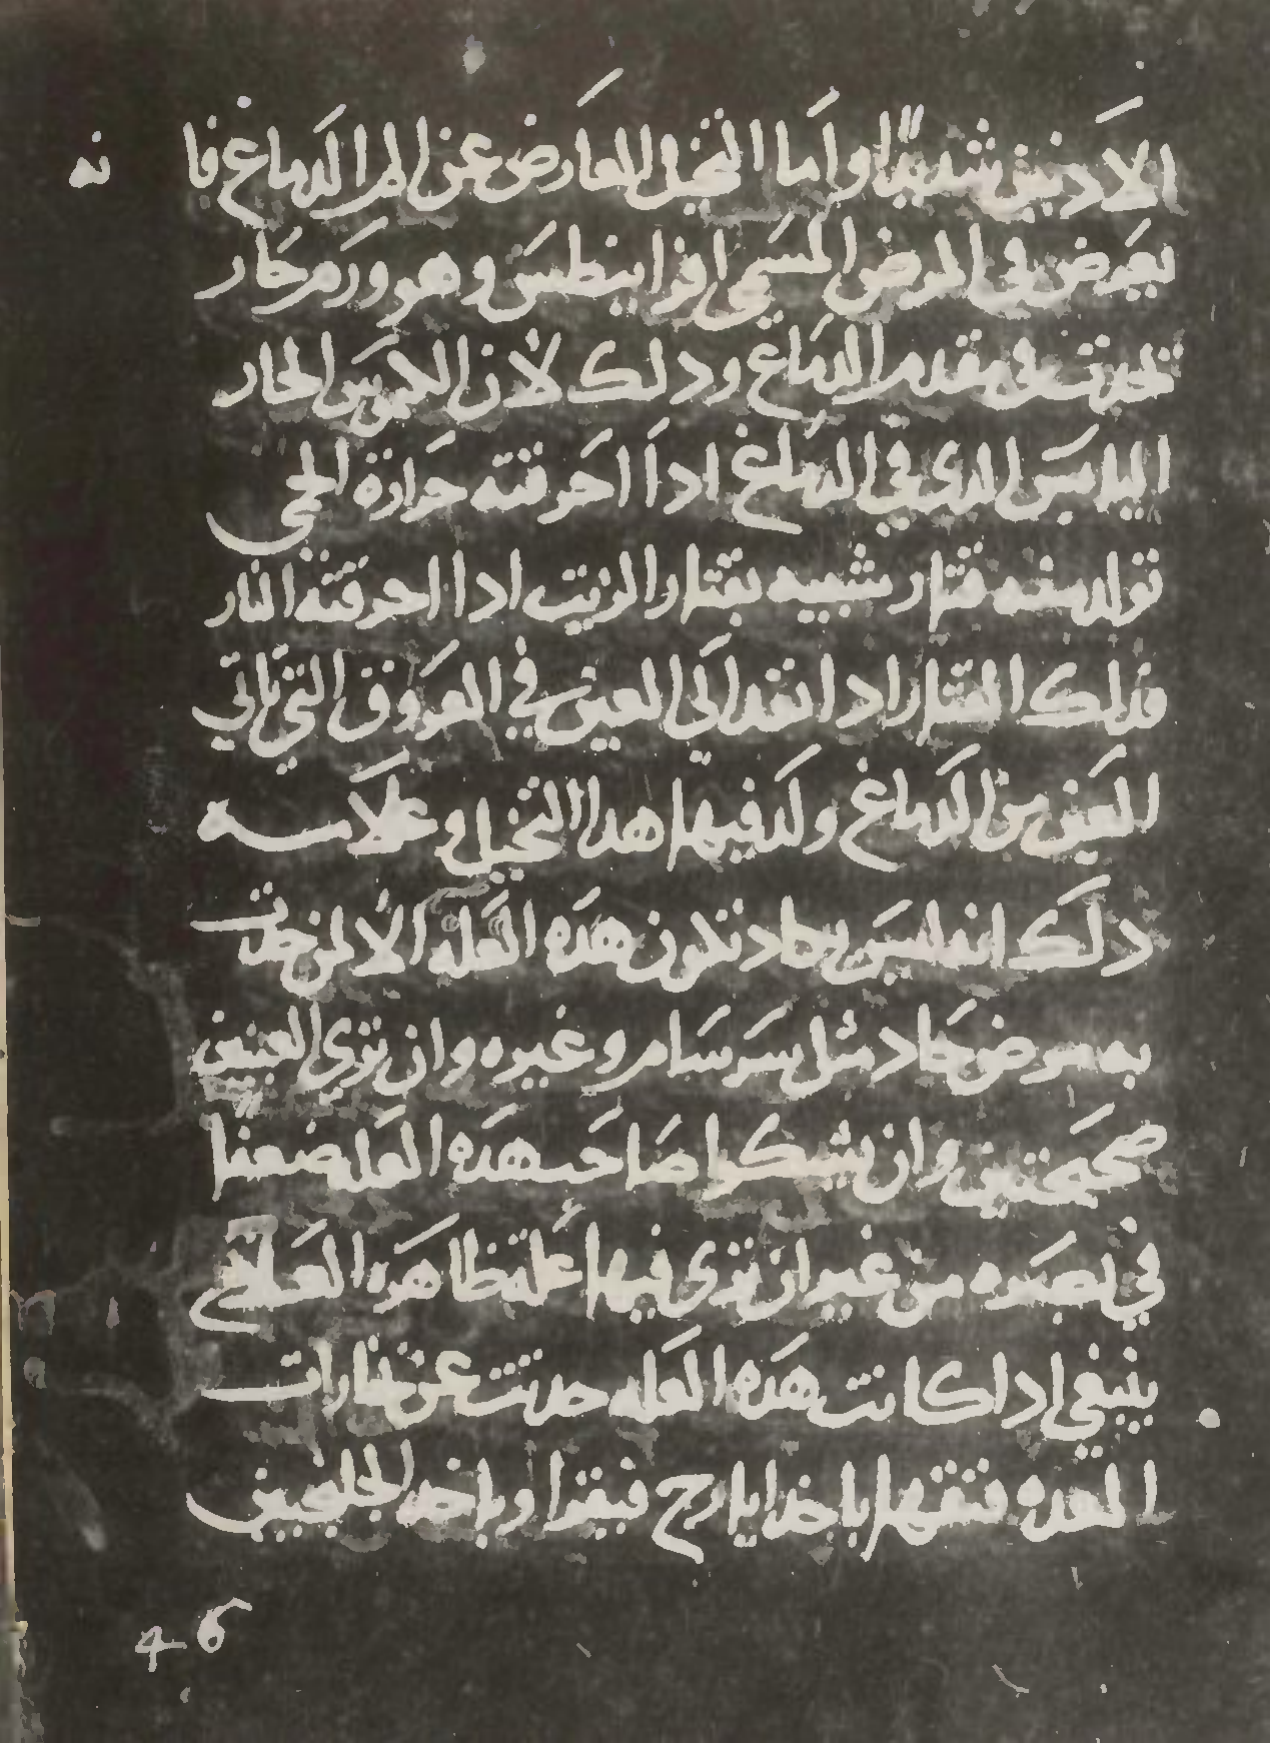 الادنين شديدا واما التخيل العارض عن الم الدماغ فا نه
يعرض في المرض المسمى افرانيطس وهو ورم حار
يحدث في مقدم الدماغ ودلك لان الكيموس الحار
اليابس الدى في الدماغ ادا احرقته حرارة الحمى
تولد منه قتار شبيه بقتار الزيت ادا احرقته النار
فدلك القتار ادا نفد الى العين في العروق التي تاتي
العين من الدماغ ولد فيها هدا التخيل وعلامه
دلك انه ليس يكاد تكون هده العله الا لمن حدث
به مرض حاد مثل سرسام وغيره وان ترى العينين
صحيحتين وان يشكوا صاحب هده العله ضعفا
في بصره من غير ان ترى فيها علة ظاهره العلاج
ينبغي اداكانت هده العله حدثت عن بخارات
المعده فنقها باخد ايارج فيقرا وباخد الجلنجبين
46